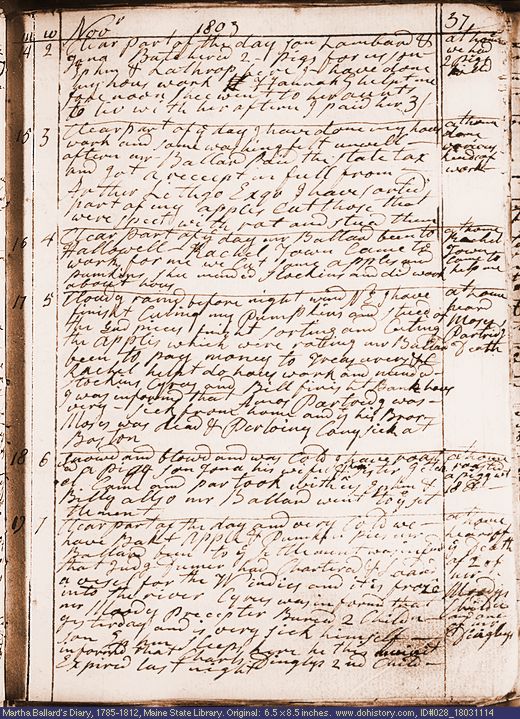 m w Novr 1803 371
14 2 Clear part of the day Son Lambard &
Jona Butcherd 2 Pigs for us Son
Ephm & Lathrop I have done
my hous work Hannah here
forenoon Shee went to her aunts
to live with her after I paid her 3/
at home
we had
2 pigs
killd
15 3 Clear part of ye day I have done my hous
work and some washing felt unwell
aftern mr Ballard paid the State tax
and got a receipt in full from
Brother Jethgo Exgo I have sorted
part of my apples Cut those that
were speckt with rot and stued them
at home
done
work
16 4 Clear part of ye day mr Ballard been to
Hallowell Rachel Town Came to
work for me we Cut some apples and
pumkins shee mended Stockins and did work
about hous
at home
Rachel
Town
Came to
help me
17 5 Cloudy raind before night wind NE I have
finisht Cuting my Pumpkins and stued of
the 2nd pieces finisht sorting and Cuting
the apples which were roting mr Ballard
been to pay money to
Rachel helpt do hous work and mend
Stockins Cyrus and Bill finisht Bank hous
I was informd that Amos Partridg was
very sick from home and his Bror
Moses was dead & Perloing Cony sick at
Boston
at home
heard
Moses
Partridg
Death
18 6 Snowd and blowd and was Cold I have roast
a pigg Son Jona his wife
Came and partook with us Ephm &
Billy allso mr Ballard went to ye Set
tlement
at home
roasted
a pigg
19 1 Clear part of the day and very Cold we
have Bakt Apple & Pumkin pies mr
Ballard been to ye Settlement was informd
that Judg Sumer had Charterd &
a vesel for the W Indies and it is froze
into the river Cyrus was informd that
mr Moodey Precepter Buried 2 Children
yesterday and is very sick himself
Son Ephm sleeps here he
informd that Charls Dinglys 2nd Child
Expired last night
at home
hear of
ye Death
of 2 of
Moodys
Children
and
Dinglys
Martha Ballard's Diary, 1785-1812, Maine State Library. Original: 6.5 x 8.5 inches. www.dohistory.com, ID#028_18031114